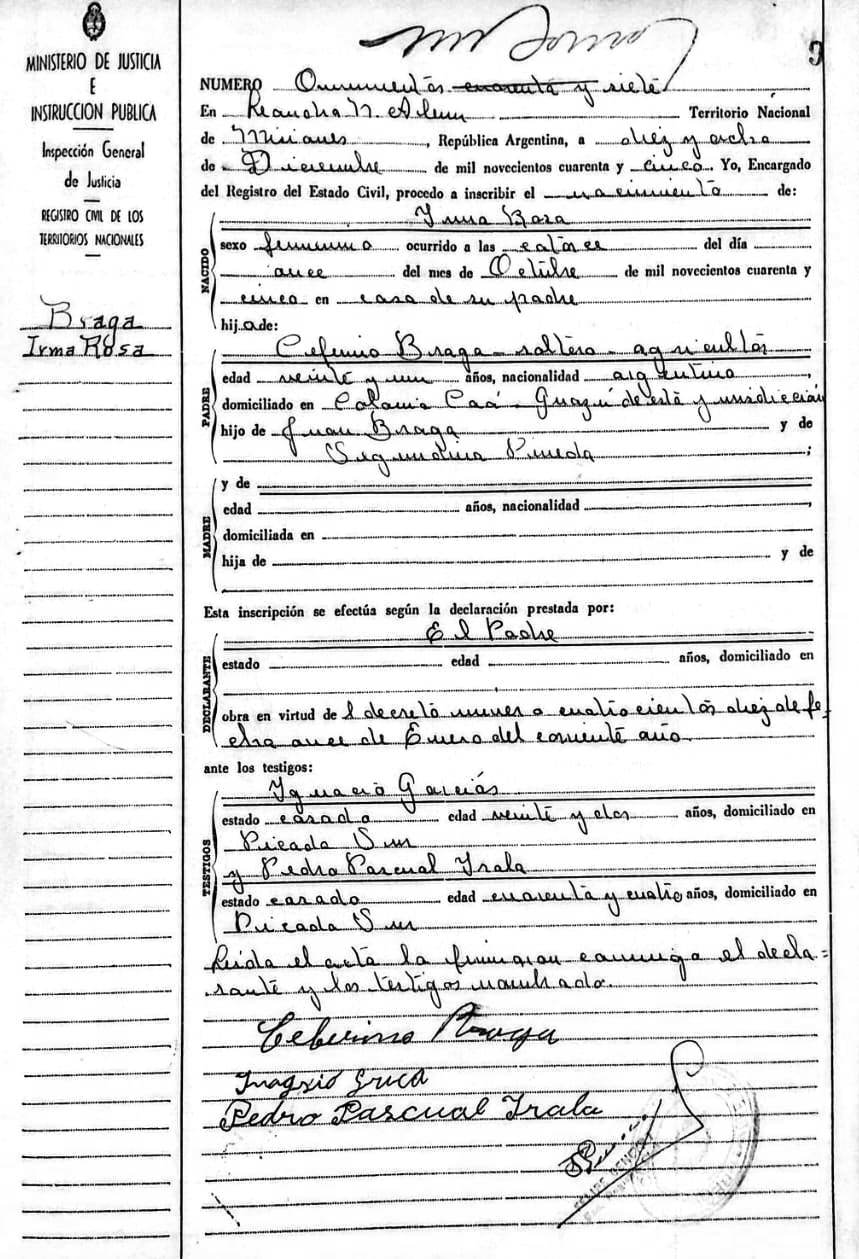 MINISTERIO DE JUSTICIA
E
INSTRUCCION PUBLICA
Inspección General
de Justicia
REGISTRO CIVIL DE LOS
TERRITORIOS NACIONALES
Braga
Irma Rosa
9
NUMERO y siete
En Leandro N. Alem Territorio Nacional
de Misiones, República Argentina, a diez y ocho
de Diciembre de mil novecientos cuarenta y cinco. Yo, Encargado
del Registro del Estado Civil, procedo a inscribir el nacimiento de:
NACIDO
Irma Rosa
sexo femenino ocurrido a las catorce del día
once del mes de Octubre de mil novecientos cuarenta y
cinco en casa de su padre
hija de:
PADRE
Ceferino Braga - soltero - agricultor
edad veinte y un años, nacionalidad argentino,
domiciliado en Colonia Caá-Guazú de esta jurisdicción
hijo de Juan Braga y de
Segundina Pineda;
MADRE
y de
edad años, nacionalidad
domiciliada en
hija de y de
Esta inscripción se efectúa según la declaración prestada por:
DECLARANTE
El Padre
estado edad años, domiciliado en
obra en virtud del decreto número cuatrocientos diez de fe-
cha once de Enero del corriente año.
ante los testigos:
TESTIGOS
Ignacio
estado casado edad veinte y dos años, domiciliado en
Picada Sur
y Pedro Pascual Irala
estado casado edad cuarenta y cuatro años, domiciliado en
Picada Sur
Leida el acta la firmaron conmigo el decla-
rante y los testigos nombrado.
Ceferino Braga
Pedro Pascual Irala